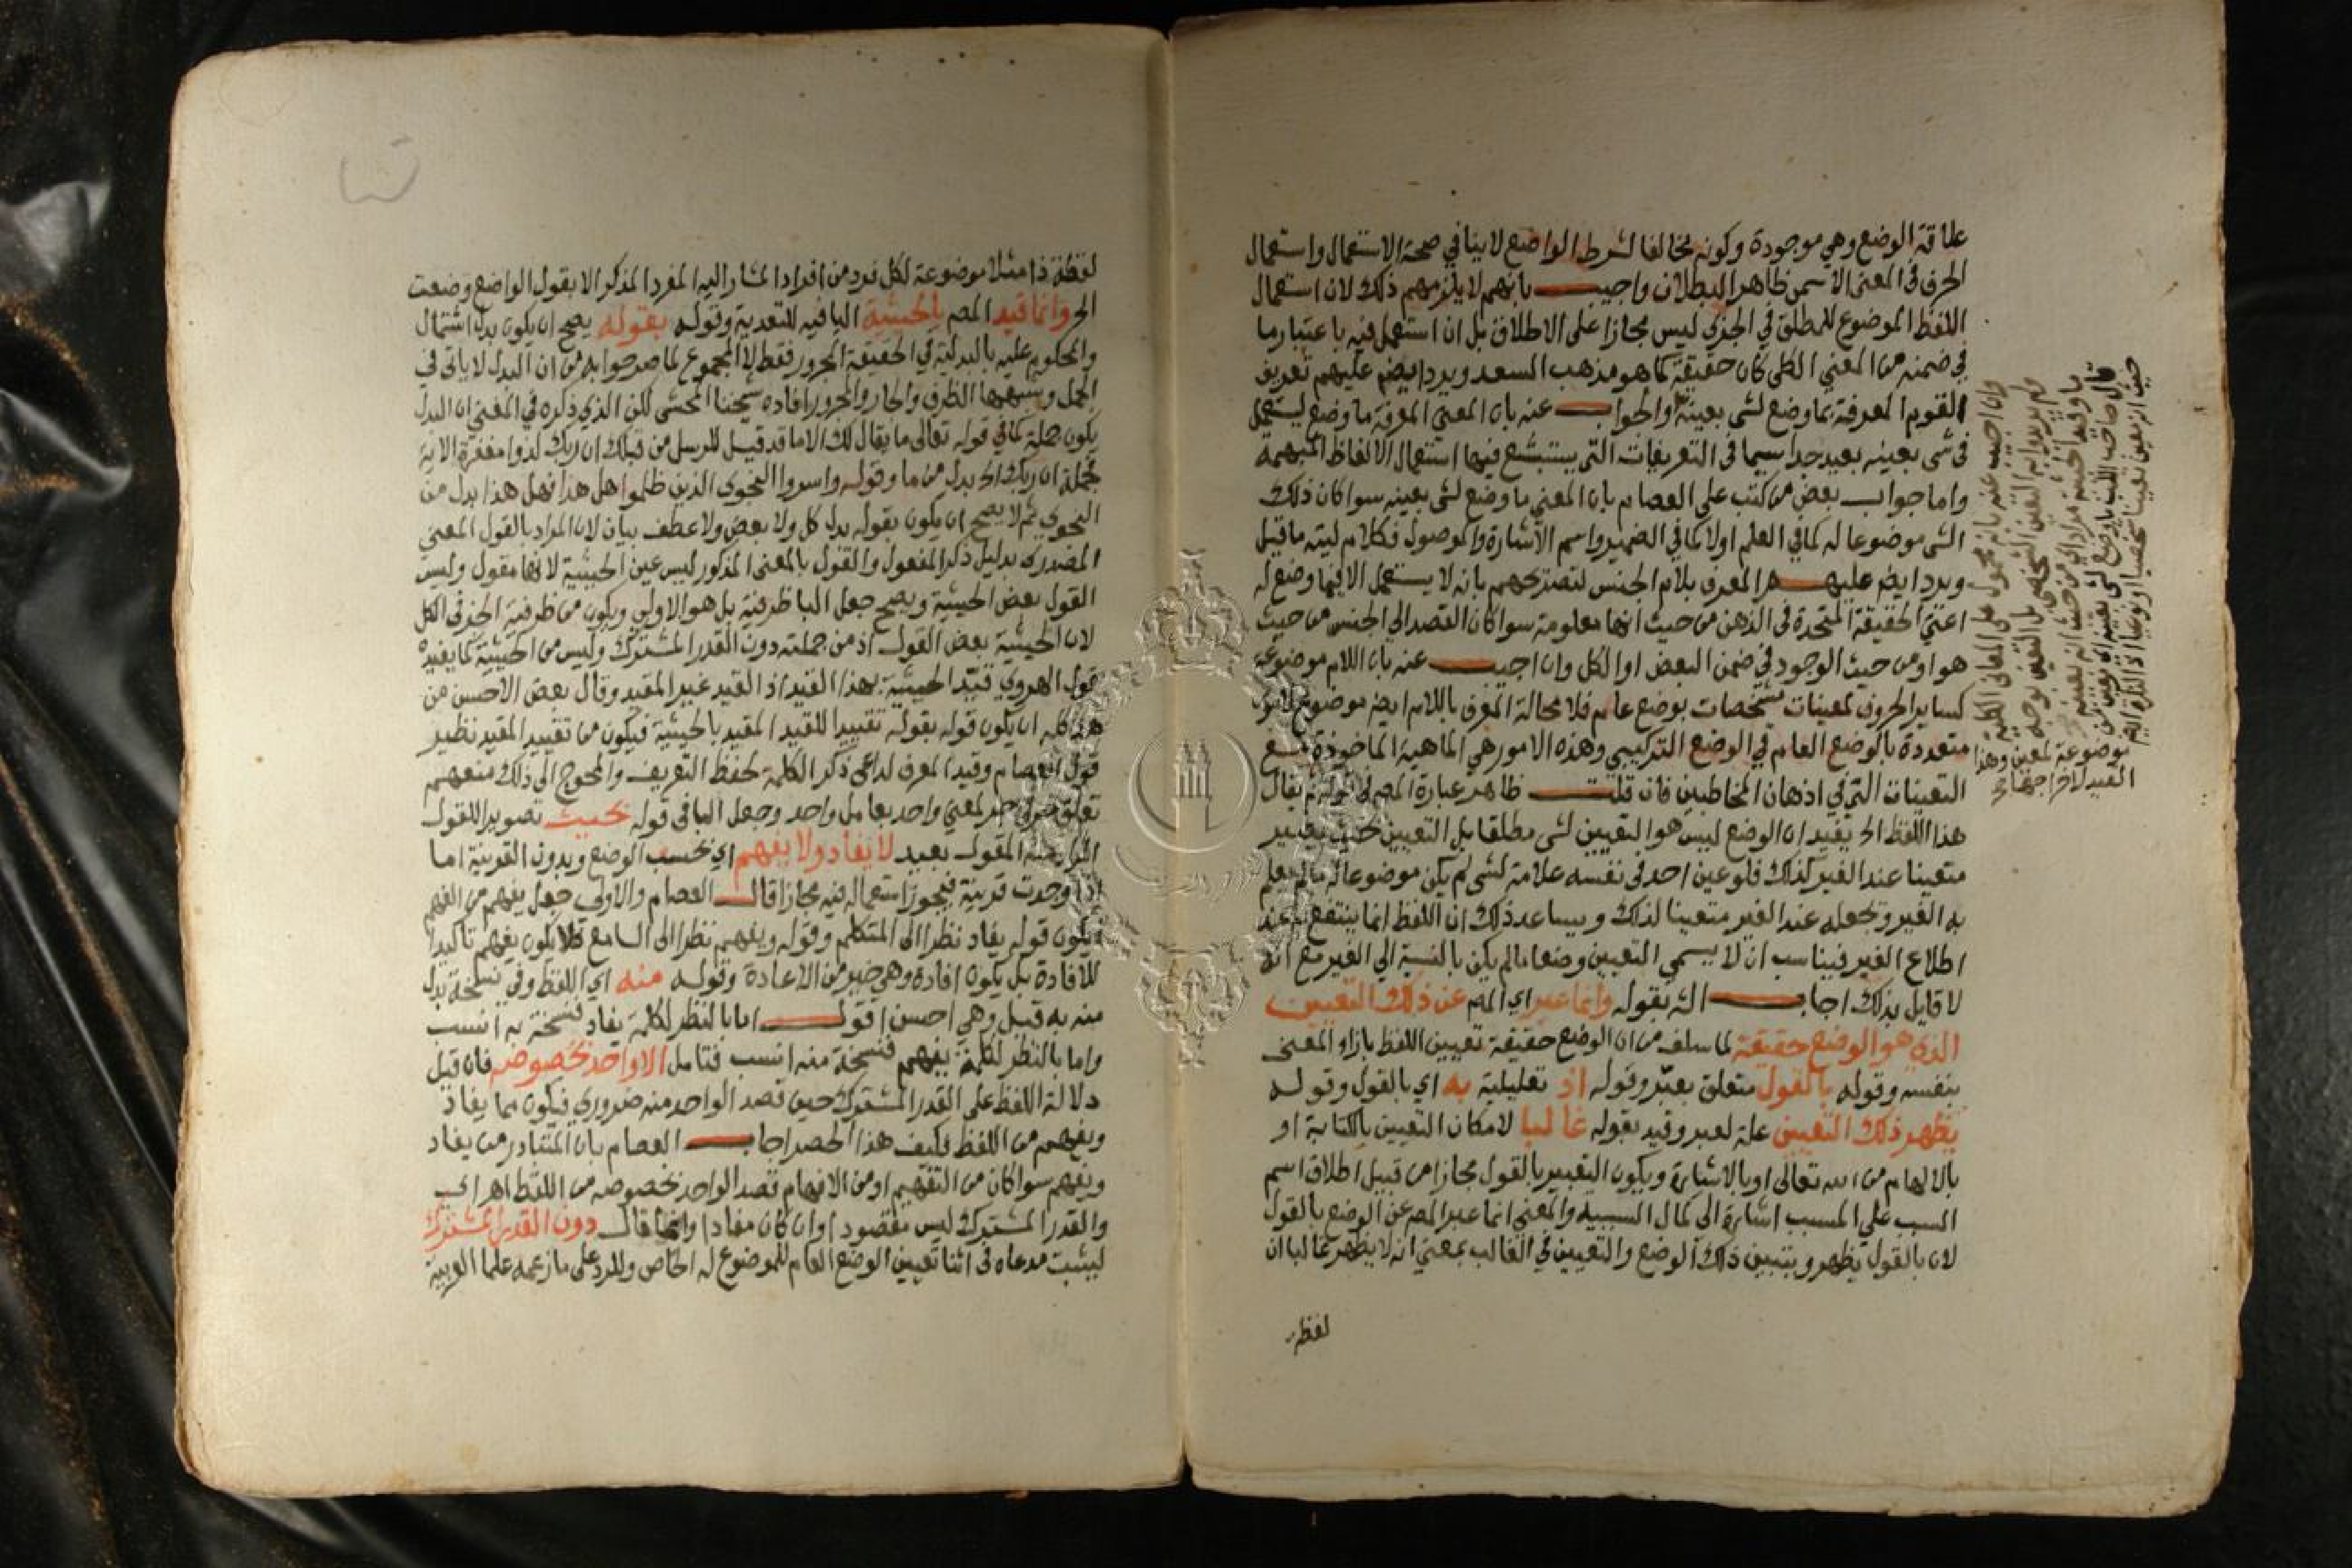 علاقة الوضع وهي موجودة وكونه مخالفا لشرط الواضع لا ينافي صحة الاستعمال واستعمال
الحرف في المعنى الاسمى ظاهر البطلان واجيب بانهم لا يلزمهم ذلك لان استعمال
اللفظ الموضوع للمطلق في الجزى ليس مجازا على الاطلاق بل ان استعمل فيه باعتبار ما
في ضمنه من المعنى الكلى كان حقيقة كما هو مذهب السعد ويرد ايضم عليهم تعريف
القوم المعرفة بما وضع لشى بعينه والجواب عنه بان المعنى المعرفة ما وضع ليستعمل
فى شى بعينه بعيد جدا سيما فى التعريفات التى يستبشع فيها استعمال الالفاظ المبهمة
واما جواب بعض من كتب على العصام بان المعنى ما وضع لشى بعينه سوا كان ذلك
الشى موضوعا له كما في العلم اولا كما في الضمير واسم الاشارة والموصول فكلام ليته ما قيل
ويرد ايضم عليهم المعرف بلام الجنس لتصريحهم بانه لا يستعمل الا فيما وضع له
اعنى الحقيقة المتحدة فى الذهن من حيث انها معلومة سوا كان القصد الى الجنس من حيث
هو او من حيث الوجود في ضمن البعض او الكل وان اجيب عنه بان اللام موضوعة
كساير الحروف لمعينات مشخصات بوضع عام فلا محالة المعرف باللام ايضم موضوع
متعددة بالوضع العام في الوضع التركيبي وهذه الامور هي الماهية الماخوذة مع
التعينات التى في اذهان المخاطبين فان قلت ظاهر عبارة المصم
هذا اللفظ الخ يفيد ان الوضع ليس هو التعيين لشى مطلقا بل التعيين حيث يصير
متعينا عند الغير كذلك فلو عين احد فى نفسه علامة لشى لم يكن موضوعا له ما لم يعلم
به الغير وتجعله عند الغير متعينا لذلك ويساعد ذلك ان اللفظ انما ينتفع به عند
اطلاع الغير فيناسب ان لا يسمى التعيين وضعا ما لم يكن بالنسبة الى الغير مع انه
لا قايل بذلك اجاب الش بقوله وانما عبر اى المصم عن ذلك التعيين
الذى هو الوضع حقيقة لما سلف من ان الوضع حقيقة تعيين اللفظ بازاء المعنى
بنفسه وقوله بالقول متعلق بعبر وقوله اذ تعليلية به اي بالقول وقوله
يظهر ذلك التعيين علة لعبر وقيد بقوله غالبا لامكان التعيين بالكتابة او
بالالهام من الله تعالى او بالاشارة ويكون التعبير بالقول مجازا من قبيل اطلاق اسم
السبب على المسبب اشارة الى كمال السببية والمعنى انما عبر المصم عن الوضع بالقول
لان بالقول يظهر ويتبين ذلك الوضع والتعيين في الغالب بمعنى انه لا يظهر غالبا ان
لفظة
وان اجيب عنه بانه محمول على المعانى الكلية
ولم يريدوا به التعين الشخصى بل التعين بوجه
ما وقيد الحيثية مراد اى من حيث انه بعينه
قال صاحب اللب ما وضع لشى بعينه اى بعين من
حيث انه بعين تعينا شخصيا او نوعيا
موضوعة لمعين وهذا
القيد لاخراجها
لفظة ذا مثلا موضوعة لكل فرد من افراد المشار اليه المفرد المذكر الا بقول الواضع وضعت
الخ وانما قيد المصم بالحيثية البا فيه للتعدية وقوله بقوله يصح ان يكون بدل اشتمال
والمحكوم عليه بالبدلية في الحقيقة المجرور فقط لا المجموع لما صرحوا به من ان البدل لا ياتى في
الجمل وشبهها الظرف والجار والمجرور افاده شيخنا المحشى لكن الذى ذكره في المغنى ان البدل
يكون جملة كما في قوله تعالى ما يقال لك الا ما قد قيل للرسل من قبلك ان ربك لذو مغفرة الاية
فجملة ان ربك الخ بدل من ما وقوله واسروا النجوى الذين ظلموا هل هذا فهل هذا بدل من
النجوى ثم لا يصح ان يكون بقوله بدل كل ولا بعض ولا عطف بيان لان المراد بالقول المعنى
المصدرى بدليل ذكر المفعول والقول بالمعنى المذكور ليس عين الحيثية لانها مقول وليس
القول بعض الحيثية ويصح جعل البا ظرفية بل هو الاولى ويكون من ظرفية الجز في الكل
لان الحيثية بعض القول اذ من جملته دون القدر المشترك وليس من الحيثية كما يفيده
قول الهروى قيد الحيثية بهذا القيد اذ القيد غير المقيد وقال بعض الاحسن من
هذا كله ان يكون قوله بقوله تقييدا للقيد المقيد بالحيثية فيكون من تقييد المقيد نظير
قول العصام وقيد المعرف لداعى ذكر الكلمة لحفظ التعريف والمحوج الى ذلك منعهم
تعلق حرفى جر لمعنى واحد بعامل واحد وجعل البا فى قوله بحيث تصوير للقول
المراد منه المقول بعيد لا يفاد ولا يفهم اي بحسب الوضع وبدون القرينة اما
اذا وجدت قرينة فيجوز استعماله فيه مجازا قال العصام والاولى جعل يفهم من الفهم
فيكون قوله يفاد نظرا الى المتكلم وقوله ويفهم نظرا الى السامع فلا يكون يفهم تاكيدا
للافادة بل يكون افادة وهي خير من الاعادة وقوله منه اي اللفظ وفي نسخة بدل
منه به قيل وهي احسن اقول اما بالنظر لكلمة يفاد فنسخة به انسب
واما بالنظر لكلمة يفهم فنسخة منه انسب فتامل الا واحد بخصوصه فان قيل
دلالة اللفظ على القدر المشترك حين قصد الواحد منه ضروري فيكون مما يفاد
ويفهم من اللفظ فكيف هذا الحصر اجاب العصام بان المتبادر من يفاد
ويفهم سوا كان من التفهيم او من الافهام قصد الواحد بخصوصه من اللفظ اهـ اى
والقدر المشترك ليس مقصودا وان كان مفادا وانما قال دون القدر المشترك
ليثبت مدعاه فى اثنا تعيين الوضع العام للموضوع له الخاص وللرد على ما زعمه علما العربية